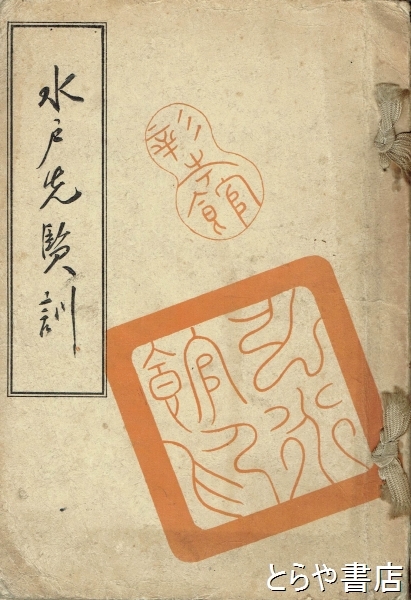 水戸先賢訓
彰考館
弘道
館印
とらや書店